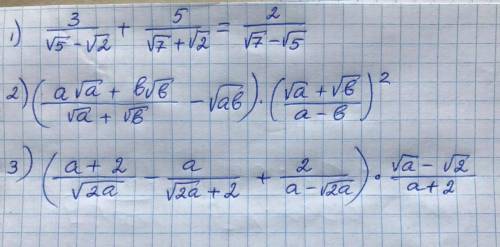 1) 3/(√5 − √2) + 5/(√7 + √2) = 2/(√7 − √5)
2) ((a√a + b√b)/(√a + √b) − √ab) · ((√a + √b)/(a − b))²
3) ((a + 2)/√2a − a/(√2a + 2) + 2/(a − √2a)) · (√a − √2)/(a + 2)